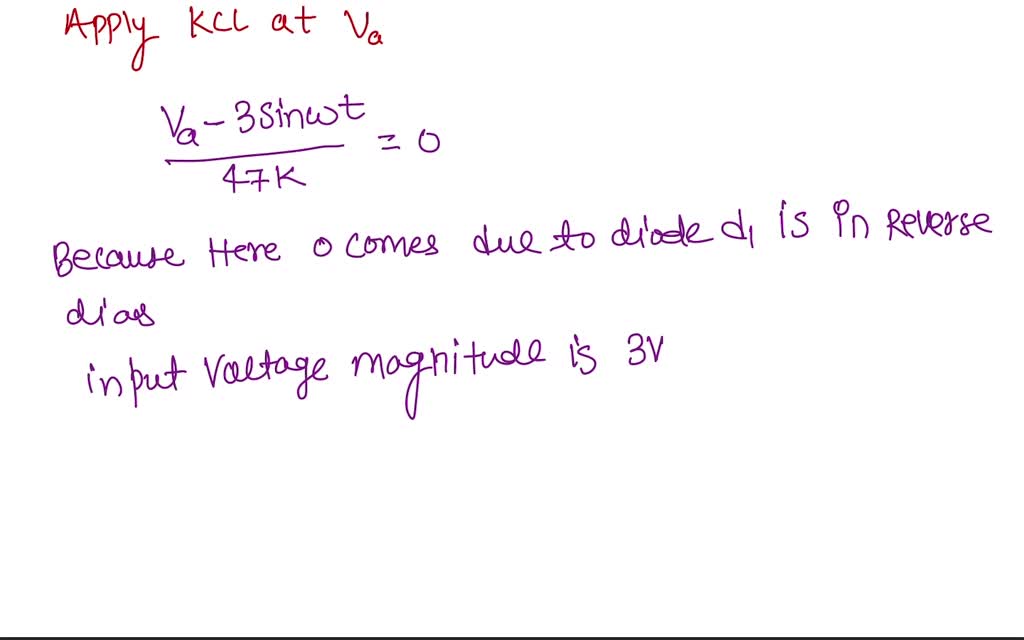 Apply KCL at Va
Va - 3sinωt
47K
= 0
Because Here 0 comes due to diode d1 is in Reverse
dias
input voltage magnitude is 3V